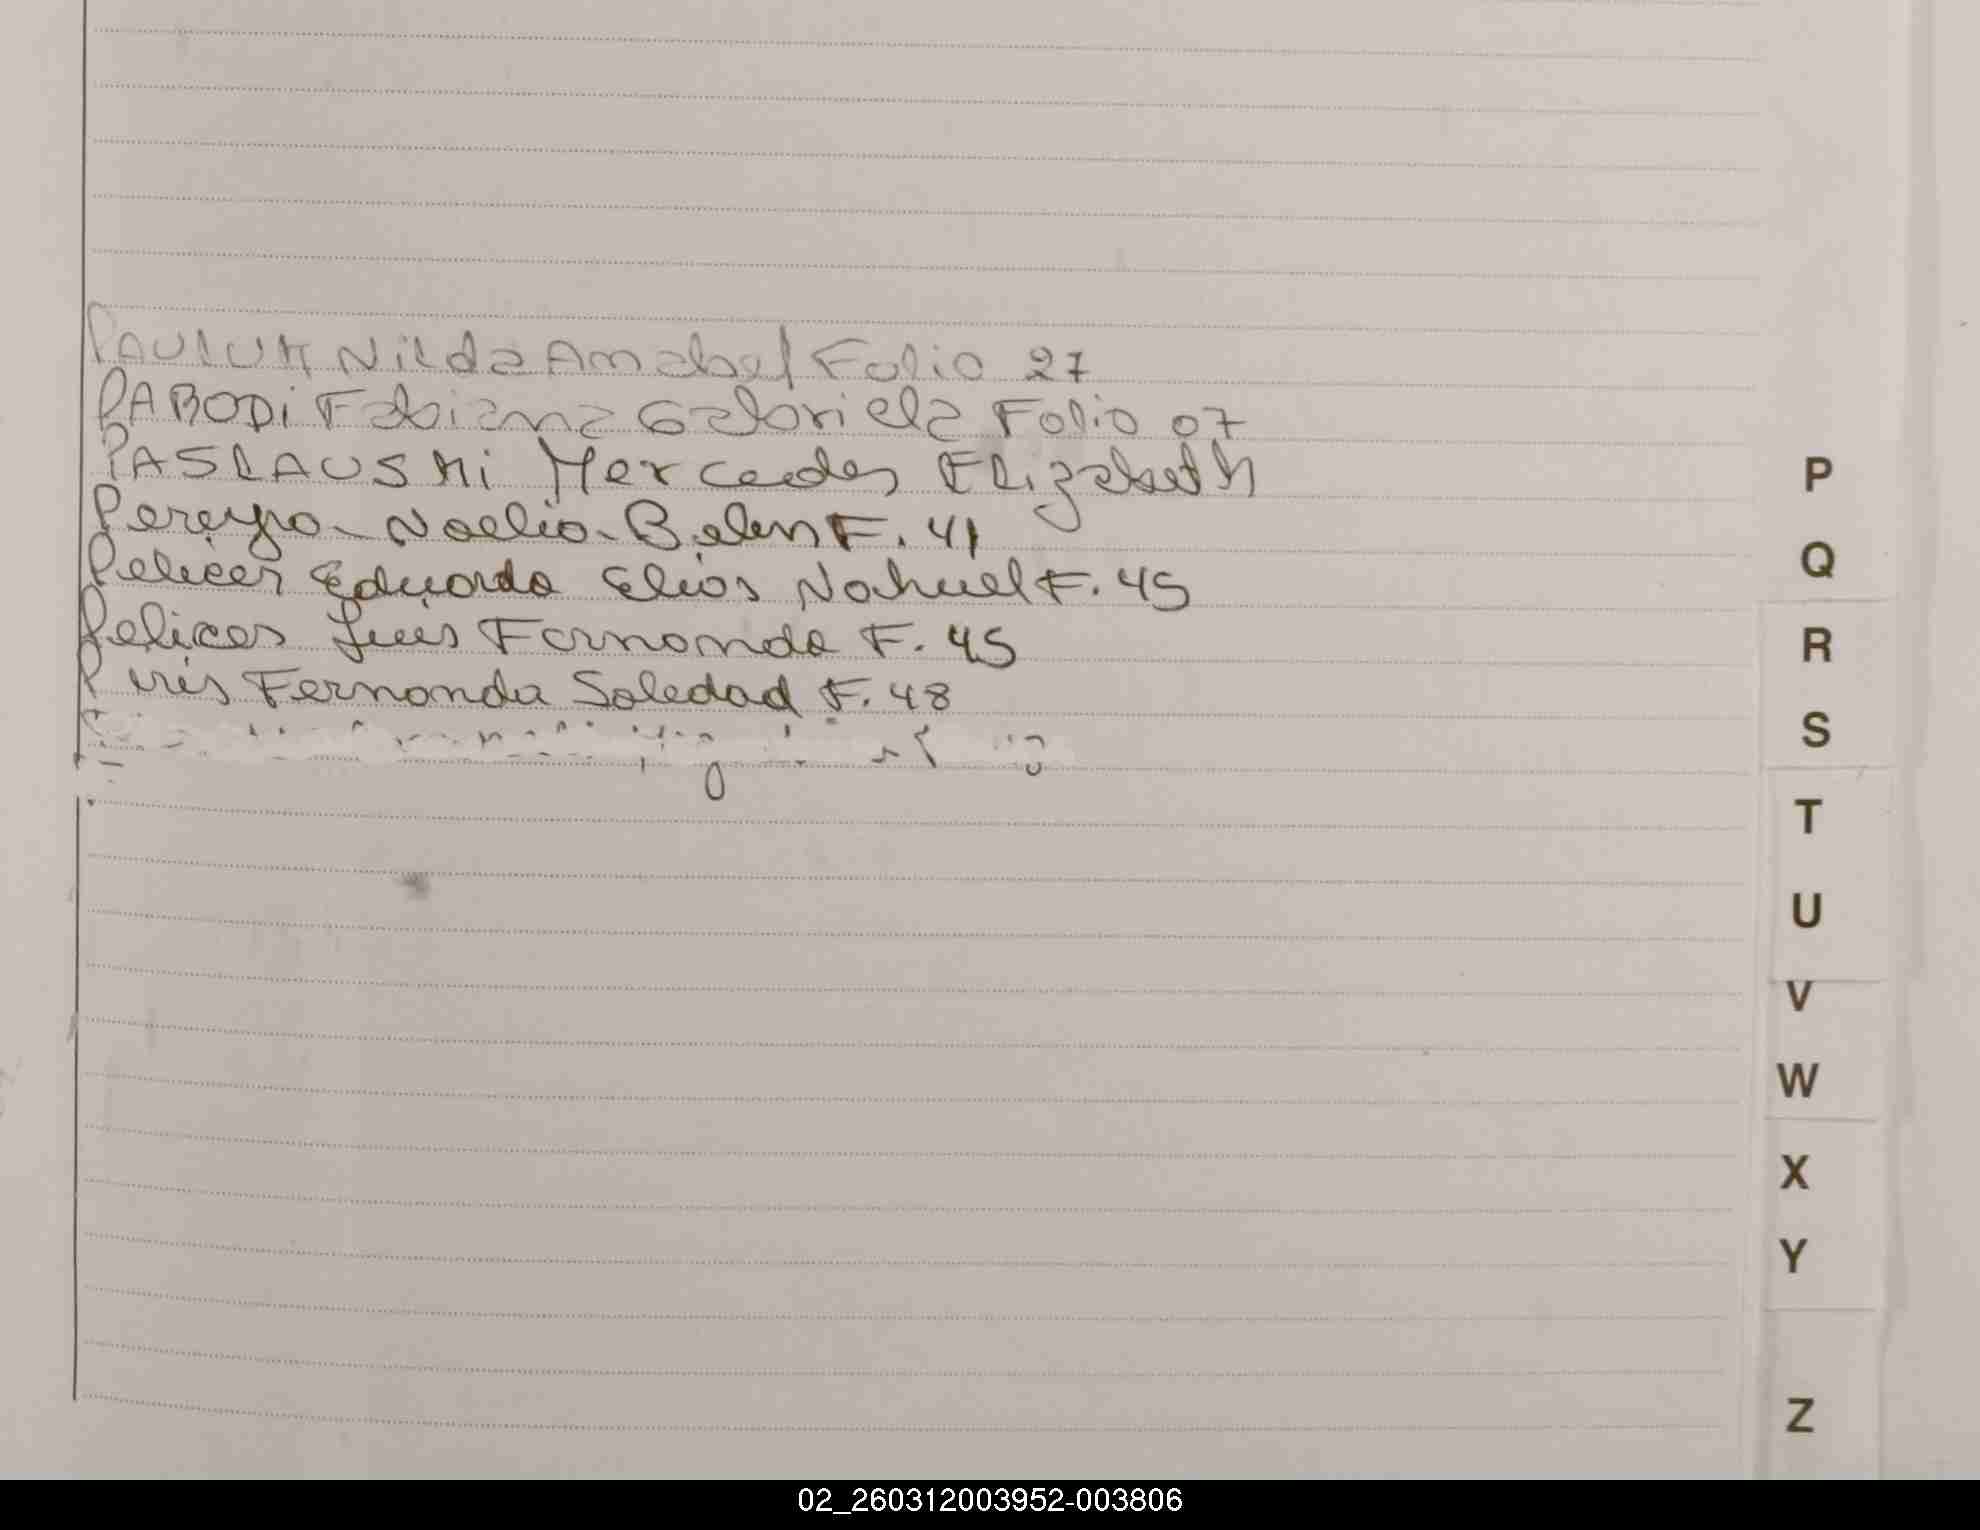 PAULUK Nilda Anabel Folio 27
PARODi Fabiana Gabriela Folio 07
PASLAUSKi Mercedes Elizabeth
Pereyra Noelia Belen F. 41
Pelicer Eduardo Elias Nahuel F. 45
Pelices Luis Fernando F. 45
Piris Fernanda Soledad F. 48
P
Q
R
S
T
U
V
W
X
Y
Z
02_260312003952-003806